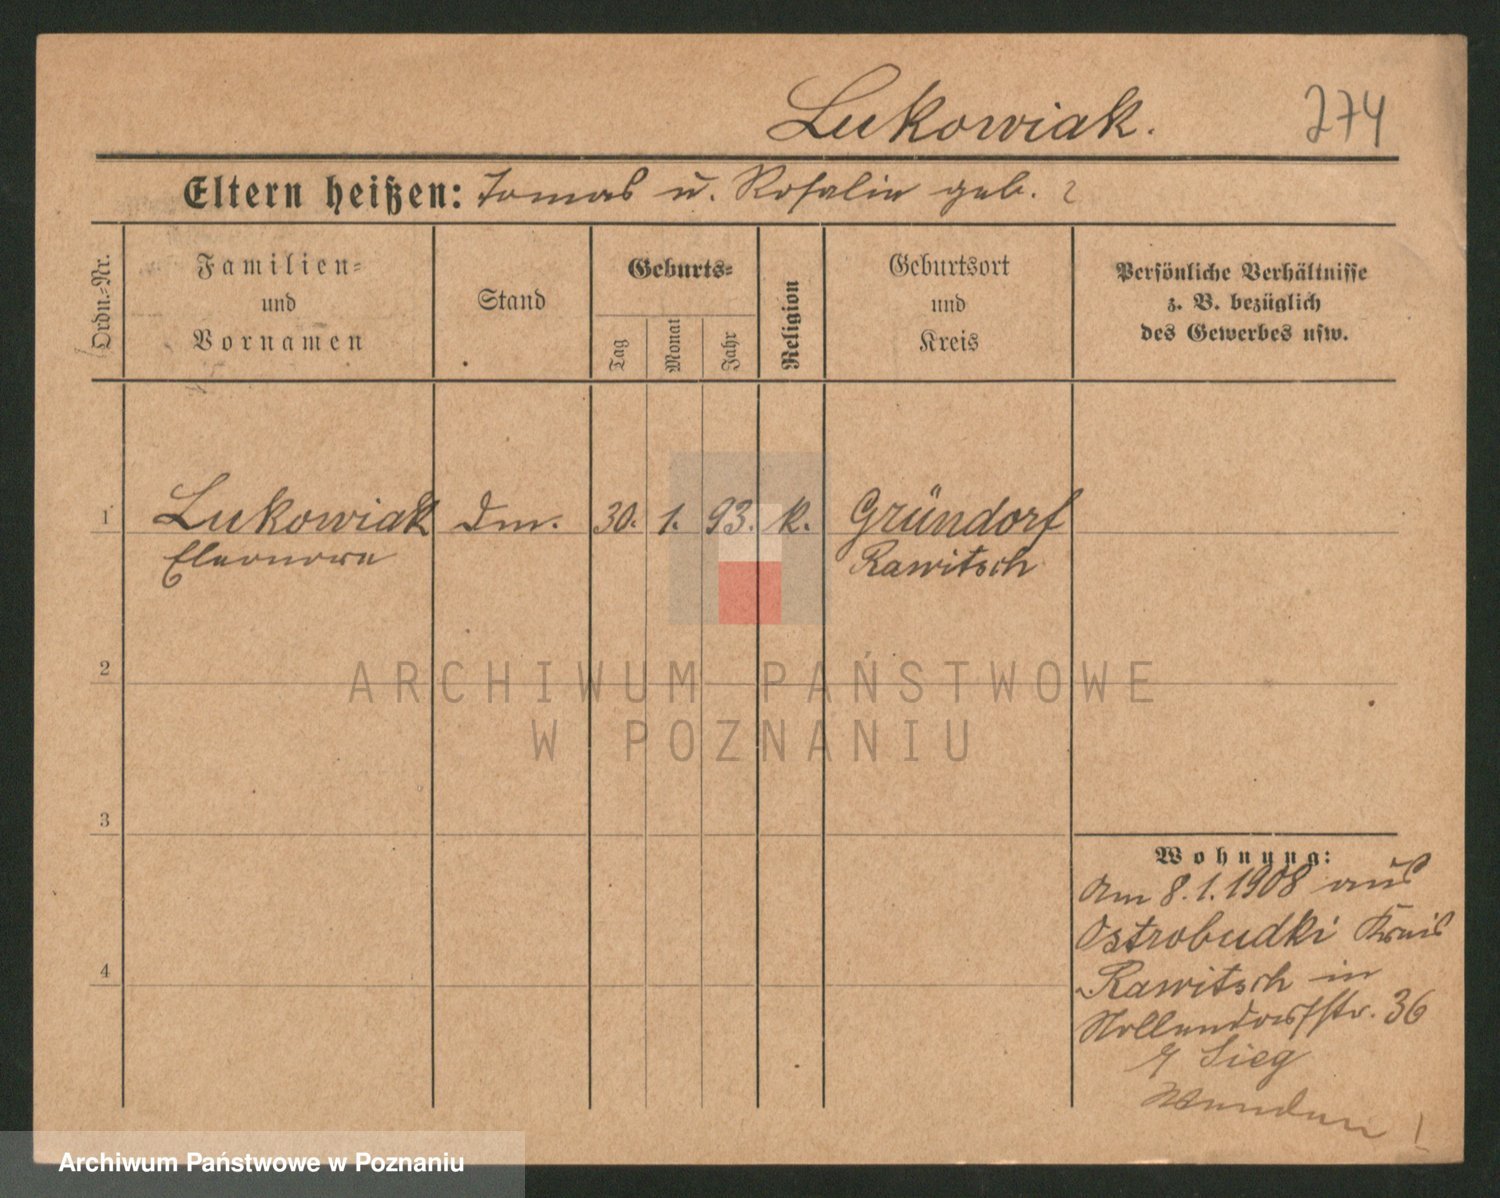 Lukowiak. 274
Eltern heißen: Tomas u. Rosalie geb. ?
Ordn.-Nr.
Familien- und Vornamen
Stand
Geburts-
Tag
Monat
Jahr
Religion
Geburtsort und Kreis
Persönliche Verhältnisse
z. B. bezüglich
des Gewerbes usw.
1 Lukowiak Dm. 30. 1. 93. k. Gründorf
Eleonore Rawitsch
2
3
4
Wohnung:
Am 8.1.1908 aus
Ostrobudki Kreis
Rawitsch in
Hollendorfstr. 36
Sieg
Wenden!
ARCHIWUM PAŃSTWOWE
W POZNANIU
Archiwum Państwowe w Poznaniu